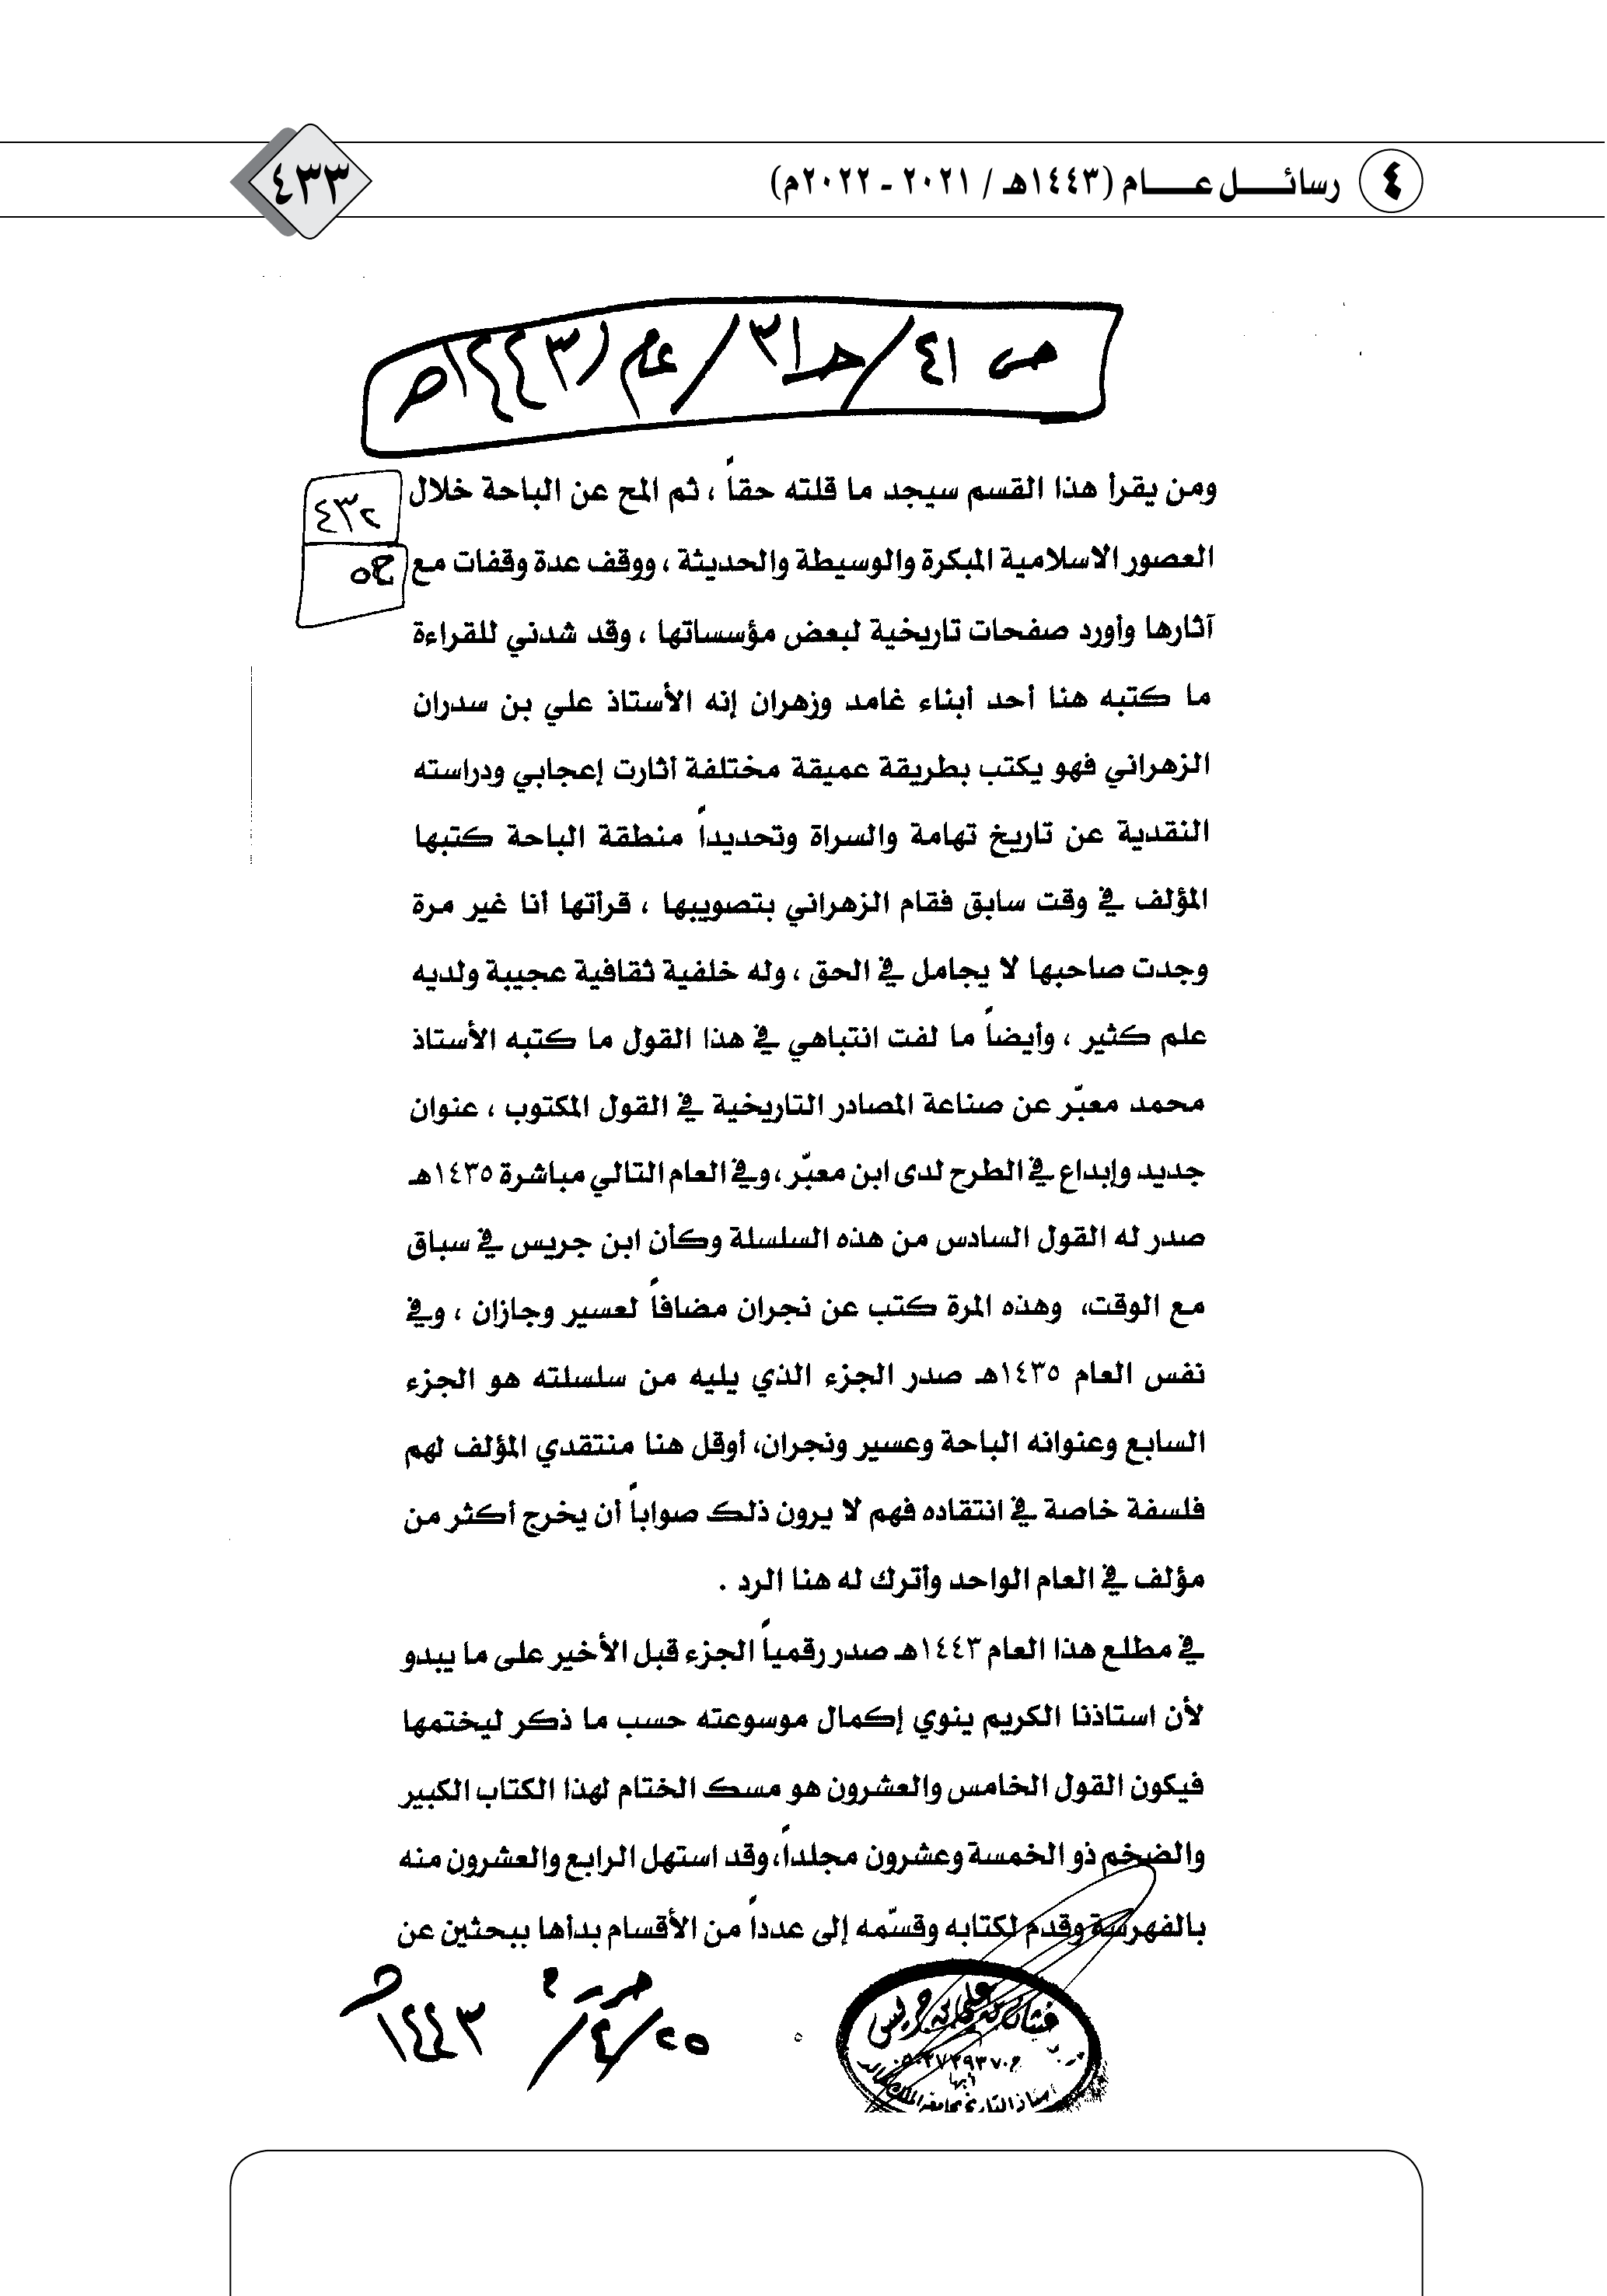 ٤ رسائـــل عـــام (١٤٤٣هـ / ٢٠٢١ - ٢٠٢٢م)
٤٣٣
ص ٤١/ حـ٣١/ عام (١٤٤٣هـ
ومن يقرأ هذا القسم سيجد ما قلته حقاً ، ثم المح عن الباحة خلال
٤٣٢
العصور الاسلامية المبكرة والوسيطة والحديثة ، ووقف عدة وقفات مع
ع٥
آثارها وأورد صفحات تاريخية لبعض مؤسساتها ، وقد شدني للقراءة
ما كتبه هنا أحد أبناء غامد وزهران إنه الأستاذ علي بن سدران
الزهراني فهو يكتب بطريقة عميقة مختلفة أثارت إعجابي ودراسته
النقدية عن تاريخ تهامة والسراة وتحديداً منطقة الباحة كتبها
المؤلف في وقت سابق فقام الزهراني بتصويبها ، قرأتها أنا غير مرة
وجدت صاحبها لا يجامل في الحق ، وله خلفية ثقافية عجيبة ولديه
علم كثير ، وأيضاً ما لفت انتباهي في هذا القول ما كتبه الأستاذ
محمد معبّر عن صناعة المصادر التاريخية في القول المكتوب ، عنوان
جديد وإبداع في الطرح لدى ابن معبّر ، وفي العام التالي مباشرة ١٤٣٥هـ
صدر له القول السادس من هذه السلسلة وكأن ابن جريس في سباق
مع الوقت، وهذه المرة كتب عن نجران مضافاً لعسير وجازان ، وفي
نفس العام ١٤٣٥هـ صدر الجزء الذي يليه من سلسلته هو الجزء
السابع وعنوانه الباحة وعسير ونجران، أوقل هنا منتقدي المؤلف لهم
فلسفة خاصة في انتقاده فهم لا يرون ذلك صواباً أن يخرج أكثر من
مؤلف في العام الواحد وأترك له هنا الرد .
في مطلع هذا العام ١٤٤٣هـ صدر رقمياً الجزء قبل الأخير على ما يبدو
لأن استاذنا الكريم ينوي إكمال موسوعته حسب ما ذكر ليختمها
فيكون القول الخامس والعشرون هو مسك الختام لهذا الكتاب الكبير
والضخم ذو الخمسة وعشرون مجلداً، وقد استهل الرابع والعشرون منه
بالفهرسة وقدم لكتابه وقسّمه إلى عدداً من الأقسام بدأها ببحثين عن
٢٥/٤/١٤٤٣هـ
غيثان بن علي بن جريس
أبها
أستاذ التاريخ بجامعة الملك خالد